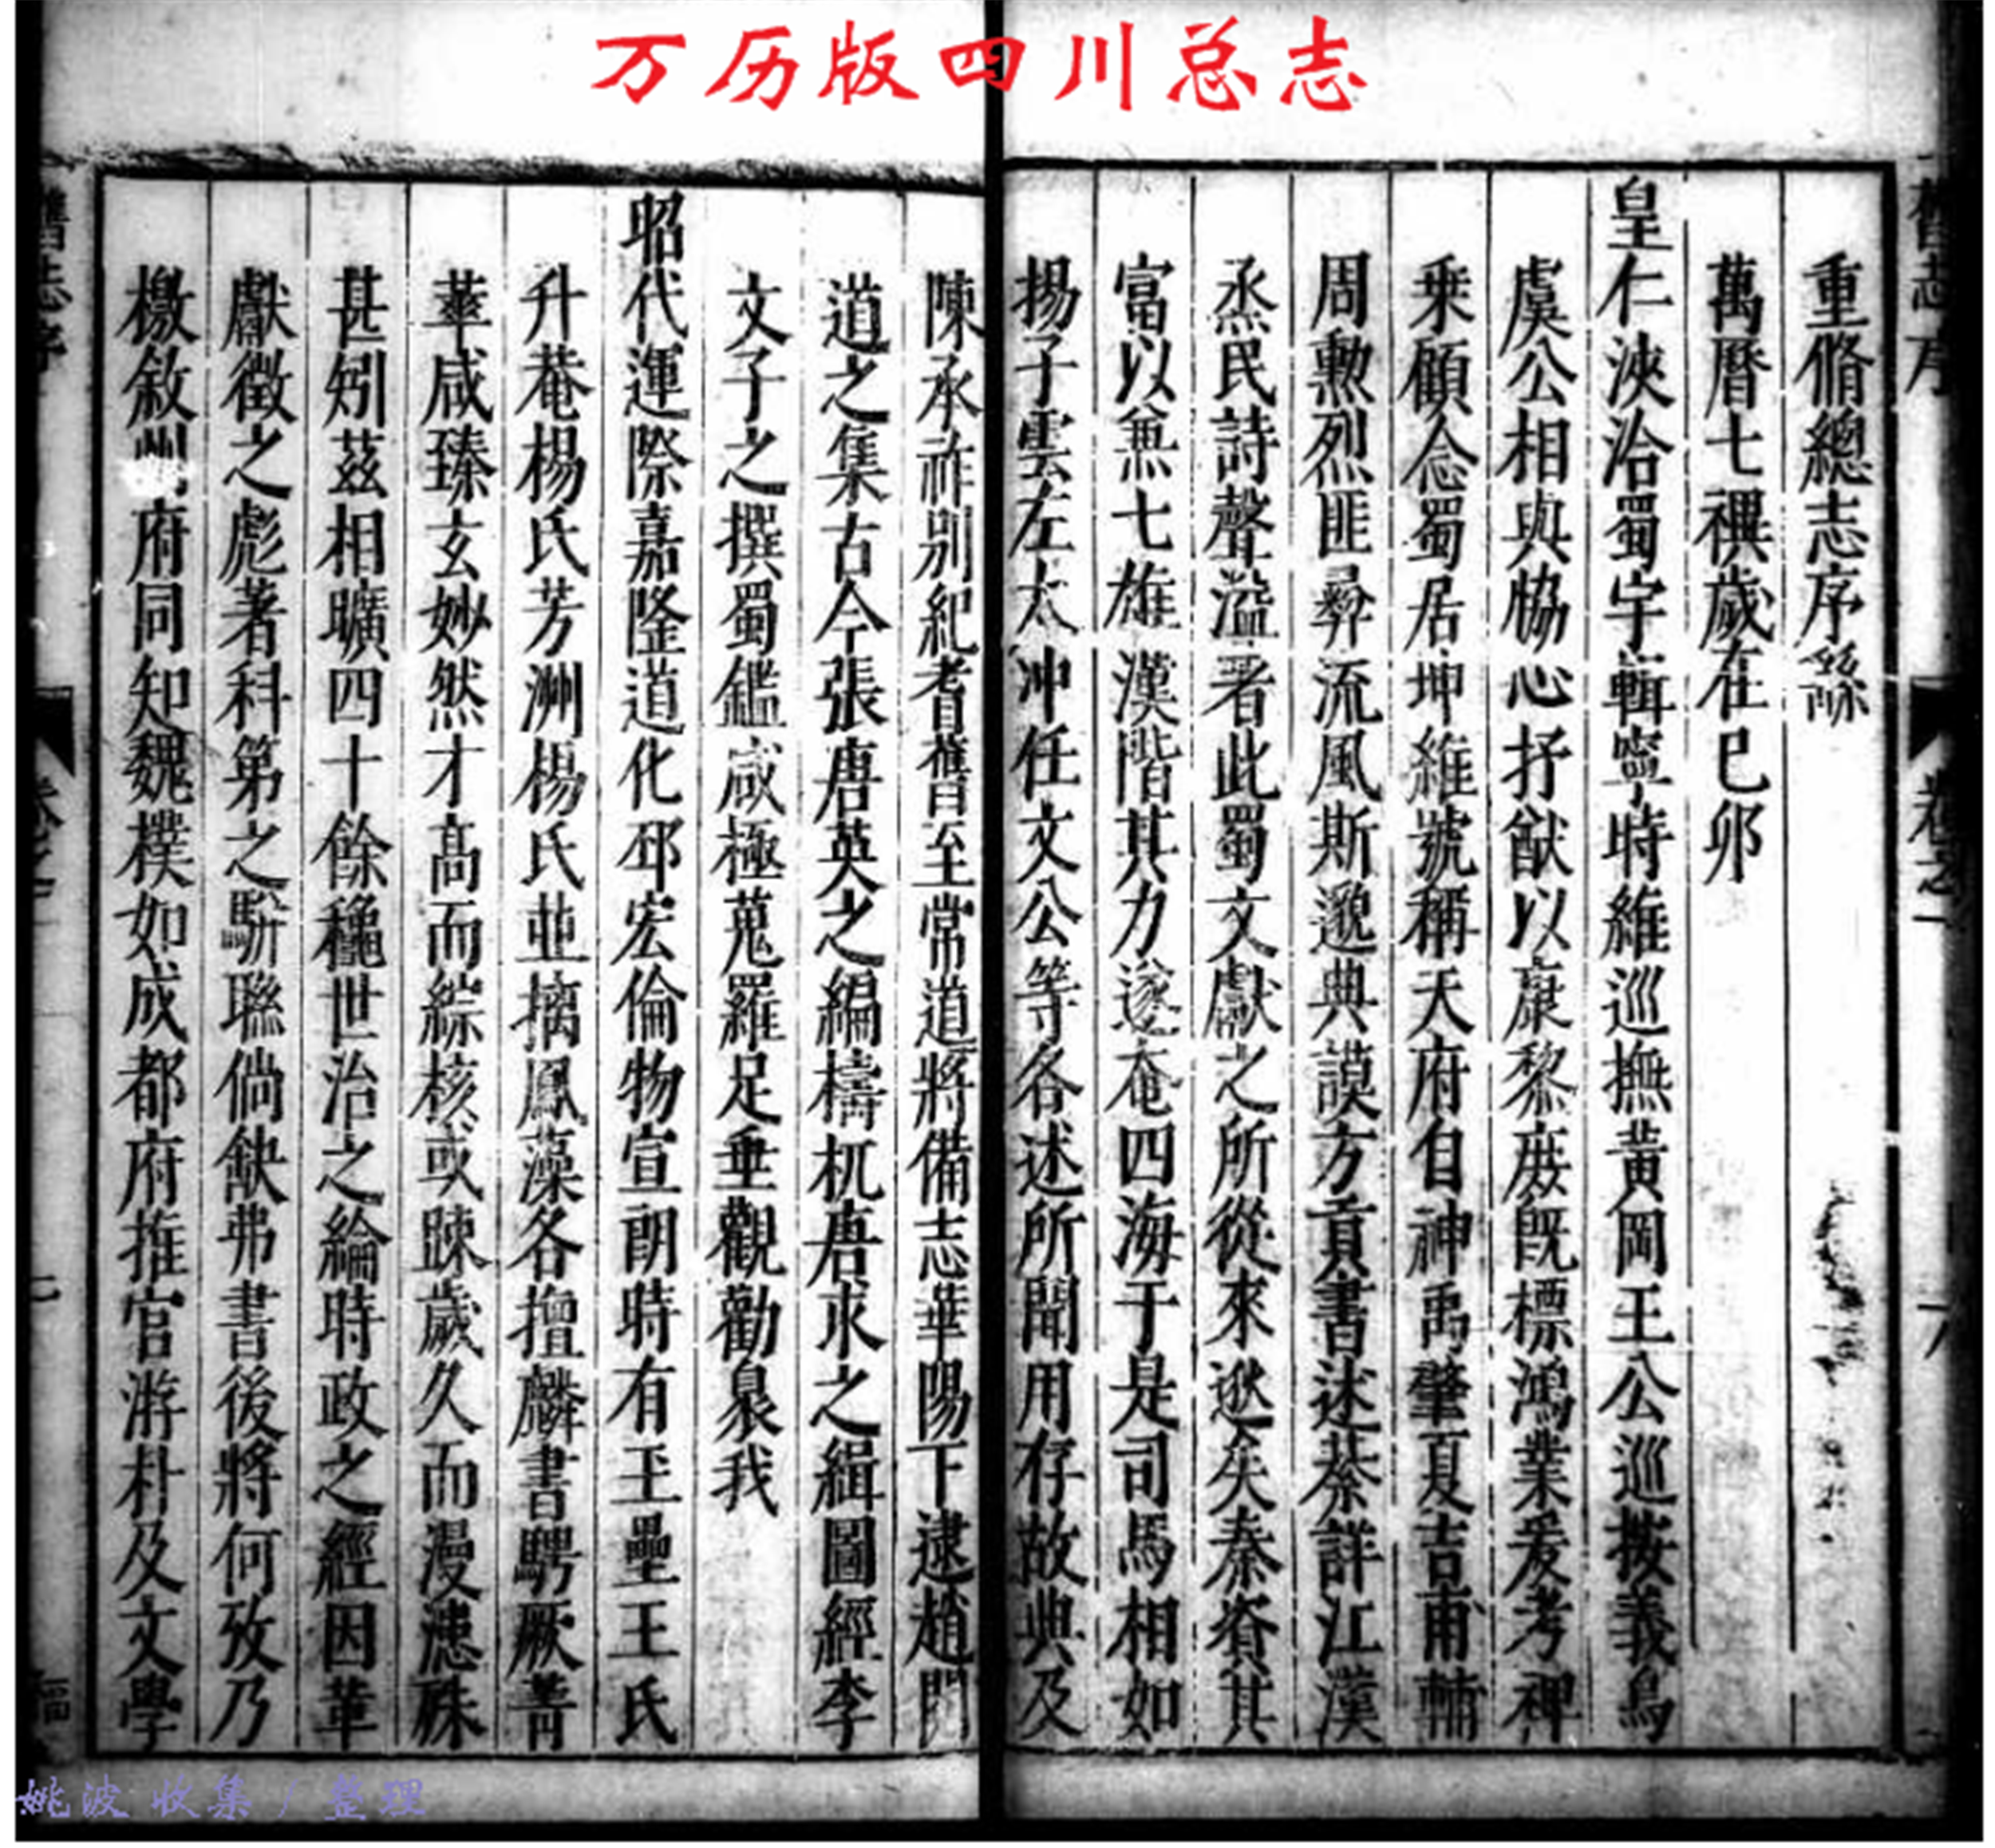 万历版四川总志
重脩總志序
萬曆七禩歲在巳卯
皇仁浹洽蜀宇輯寧時維巡撫黃岡王公巡按義烏
虞公相與恊心抒猷以康黎庶旣標鴻業爰考稗
乗顧念蜀居坤維號稱天府自神禹肇夏吉甫輔
周勲烈匪彞流風斯邈典謨方貢書述蔡詳江漢
烝民詩聲溢著此蜀文獻之所從來逖矣秦資其
富以兼七雄漢階其力遂奄四海于是司馬相如
揚子雲左太冲任文公等各述所聞用存故典及
陳承祚別紀耆舊至常道將備志華陽下逮趙閱
道之集古今張唐英之編檮杌唐求之緝圖經李
文子之撰蜀鑑咸極蒐羅足垂觀勸泉我
昭代運際嘉隆道化邳宏倫物宣朗時有玉壘王氏
升菴楊氏芳洲楊氏並摛鳳藻各擅麟書騁厥菁
華咸臻玄妙然才高而綜核或踈歲久而漫漶殊
甚矧茲相曠四十餘穐世治之綸時政之經因革
獻徵之彪著科第之駢聯倘缺弗書後將何攷乃
檄敘州府同知魏樸如成都府推官游朴及文學
舊志序
卷之一
六
舊志序
卷之一
七
姚波 收集 / 整理